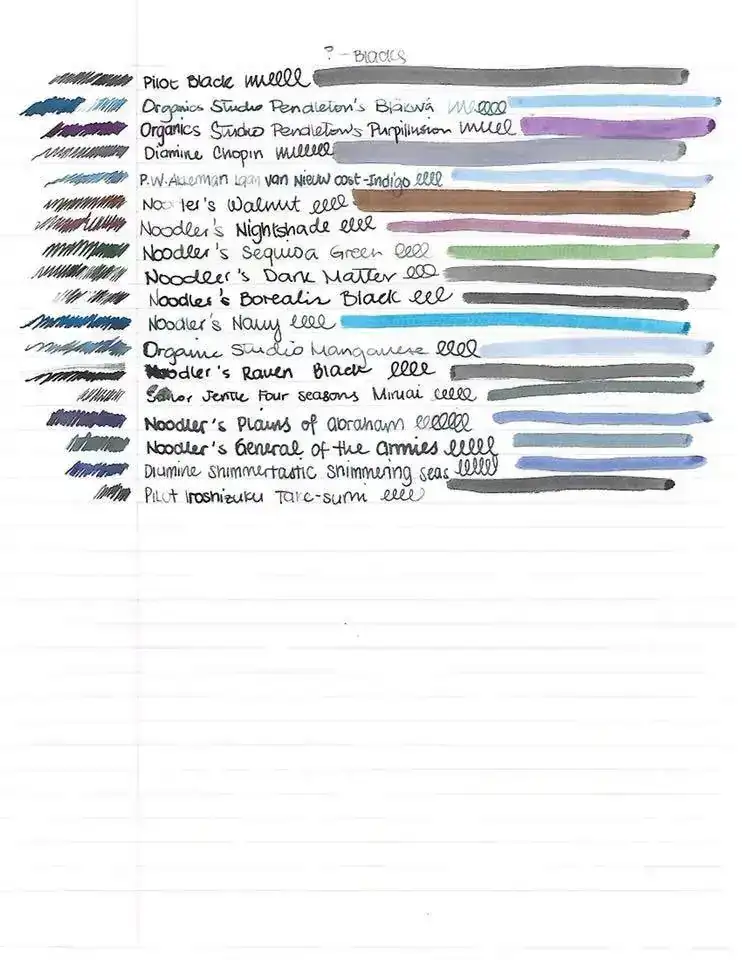 ? - Blacks
Pilot Black
Organics Studio Pendleton's Bläkwa
Organics Studio Pendleton's Purpillusion
Diamine Chopin
P.W. Akkerman Laan van Nieuw oost-Indigo
Noodler's Walnut
Noodler's Nightshade
Noodler's Sequoia Green
Noodler's Dark Matter
Noodler's Borealis Black
Noodler's Navy
Organic Studio Manganese
Noodler's Raven Black
Sailor Jentle Four seasons Miruai
Noodler's Plains of Abraham
Noodler's General of the Armies
Diamine Shimmertastic Shimmering seas
Pilot Iroshizuku Take-sumi